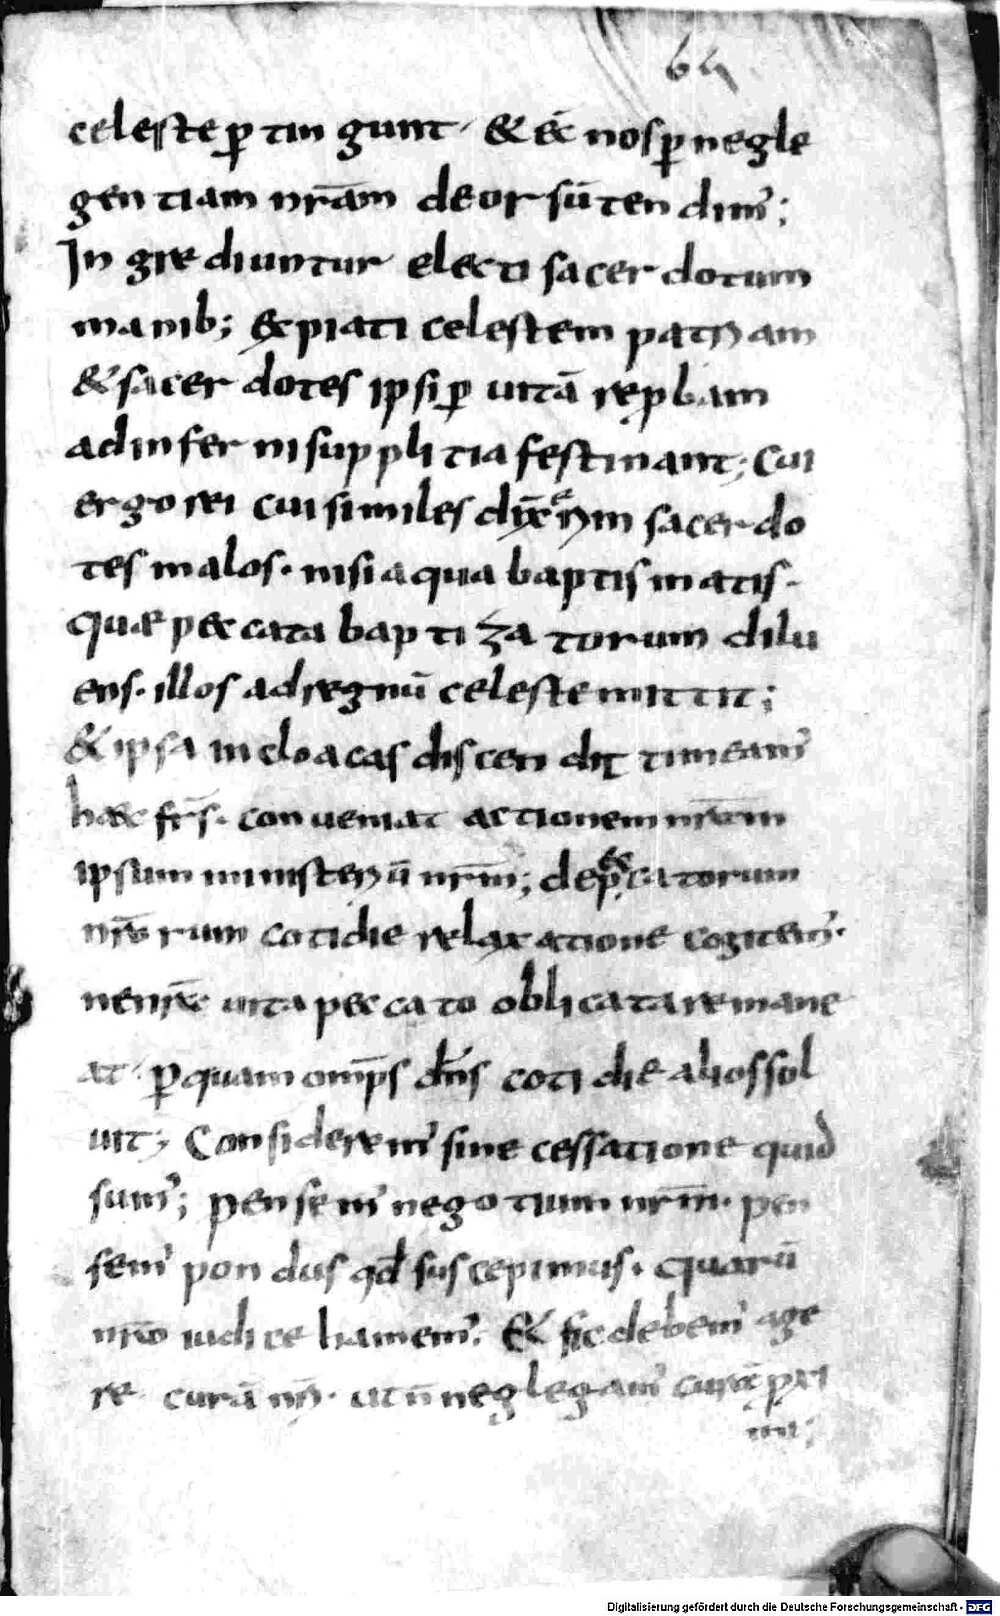 64
celeste ꝑtingunt· & ec̄ nos ꝑ negle
gentiam nr̄am deorsū tendim᾽;
Ingrediuntur electi sacerdotum
manib; expiati celestem patriam
& sacerdotes ipsi ꝑ uitā reꝓbam
ad inferni supplitia festinant; Cui
ergo rei cui similes dix̄erim sacerdo
tes malos· nisi aqua baptismatis·
quæ peccata baptizatorum dilu
ens· illos ad regnū celeste mittit;
& ipsa in cloacas discendit timeam᾽
hæc fr̄s· conueniat actionem nr̄am
ipsum ministeriū nr̄m; de peccatorum
nr̄orum cotidie relaxatione cogitem᾽·
ne nr̄a uita peccato obligata remane
at· ꝑ quam omp̄s dn̄s cotidie alios sol
uit; Considerem᾽ sine cessatione quid
sum᾽; pensem᾽ negotium nr̄m· pen
sem᾽ pondus qđ suscepimus·
iudice &  sic debem᾽ age
re curā ut n̄ neglegam᾽